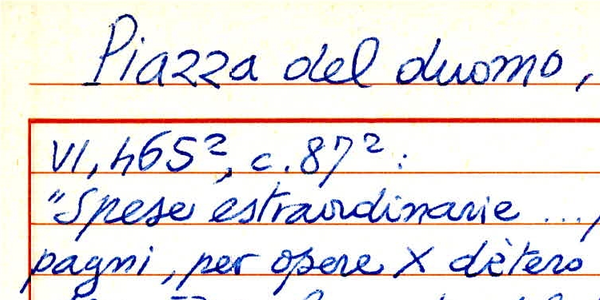 Piazza del duomo,
VI, 465², c. 87²:
"Spese estraordinarie ...
pagni, per opere X dètero